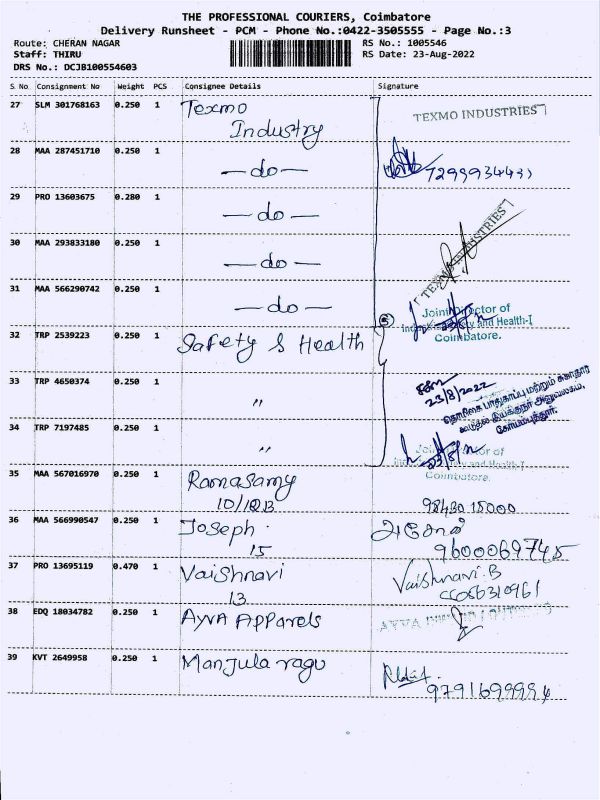 THE PROFESSIONAL COURIERS, Coimbatore
Delivery Runsheet - PCM - Phone No.:0422-3505555 - Page No.:3
Route: CHERAN NAGAR
RS No.: 1005546
Staff: THIRU
RS Date: 23-Aug-2022
DRS No.: DCJB100554603
S No Consignment No Weight PCS Consignee Details Signature
27 SLM 301768163 0.250 1 Texmo TEXMO INDUSTRIES
Industry
28 MAA 287451710 0.250 1
—do—
29 PRO 13603675 0.280 1
—do—
30 MAA 293833180 0.250 1 TEXMO INDUSTRIES
—do—
31 MAA 566290742 0.250 1
—do— Joint Director of
5 Industrial Safety and Health-I
32 TRP 2539223 0.250 1 Safety & Health Coimbatore.
33 TRP 4650374 0.250 1
" 23/8/2022
தொழிலக பாதுகாப்பு மற்றும் சுகாதார
கூடுதல் இயக்குநர் அலுவலகம்,
கோயம்புத்தூர்.
34 TRP 7197485 0.250 1
"
Coimbatore.
35 MAA 567016970 0.250 1 Ramasamy
98430 18000
36 MAA 566990547 0.250 1 Joseph. அசோக்
15 9600069745
37 PRO 13695119 0.470 1 Vaishnavi Vaishnavi.B
13
38 EDQ 18034782 0.250 1 AYVA Apparels AYVA
39 KVT 2649958 0.250 1 Manjula ragu